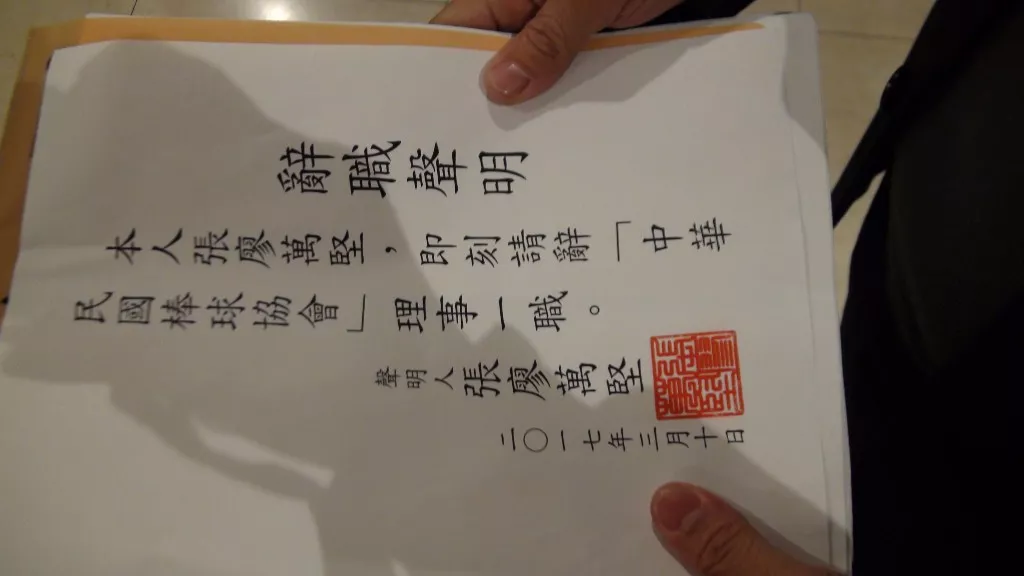 辭職聲明
本人張廖萬堅，即刻請辭「中華
民國棒球協會」理事一職。
聲明人 張廖萬堅
二〇一七年三月十日